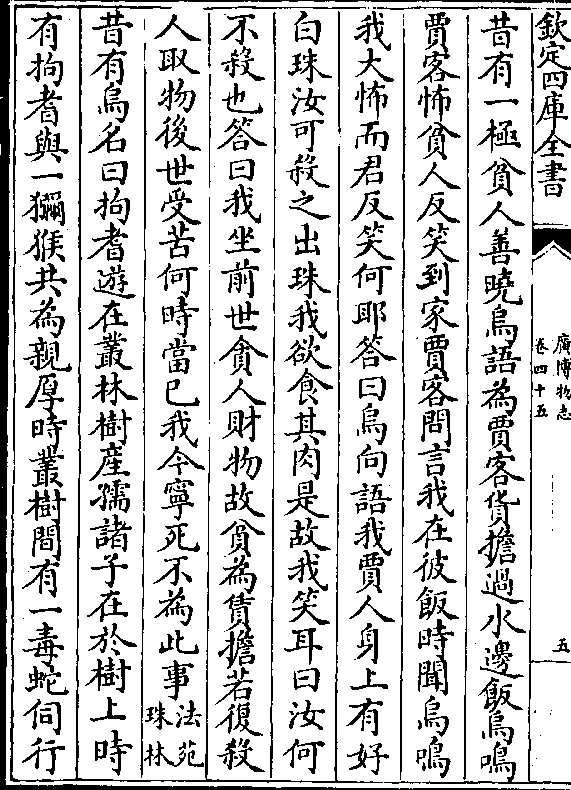 欽定四庫全書
廣博物志
卷四十五
五
昔有一極貧人善曉烏語為賈客貨擔過水邊飯烏鳴
賈客怖貧人反笑到家賈客問言我在彼飯時聞烏鳴
我大怖而君反笑何耶答曰烏向語我賈人身上有好
白珠汝可殺之出珠我欲食其肉是故我笑耳曰汝何
不殺也答曰我坐前世貪人財物故貧為賃擔若復殺
人取物後世受苦何時當已我今寧死不為此事法苑珠林
昔有烏名曰拘耆遊在叢林樹産孺諸子在於樹上時
有拘耆與一獼猴共為親厚時叢樹間有一毒蛇伺行